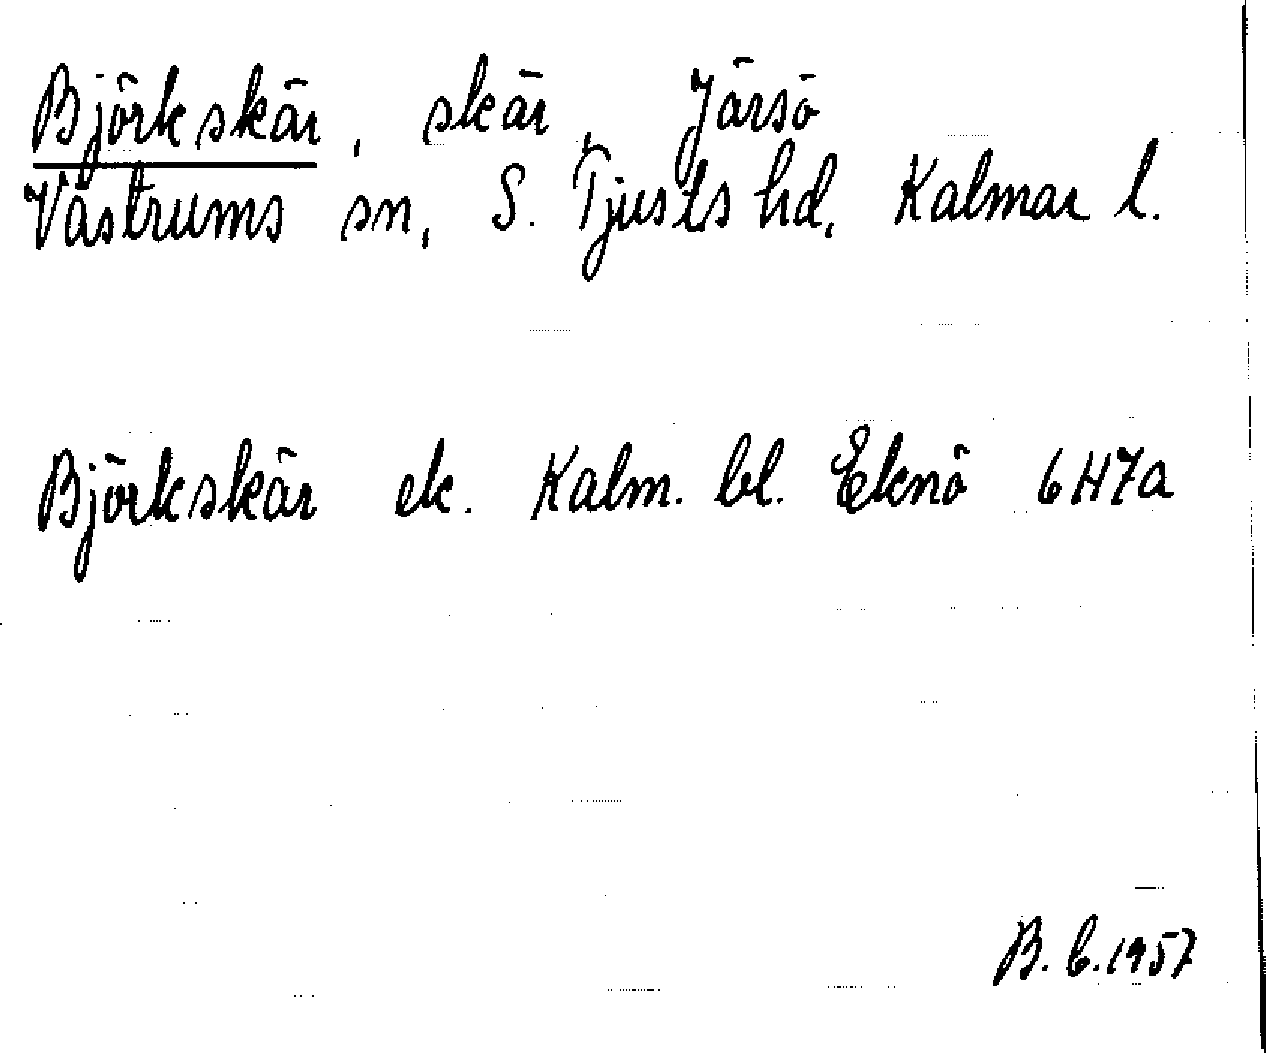 Björkskär, skär, Järsö
Västrums sn, S. Tjusts hd, Kalmar l.
Björkskär ek. Kalm. bl. Eknö 6H7a
B. C. 1957